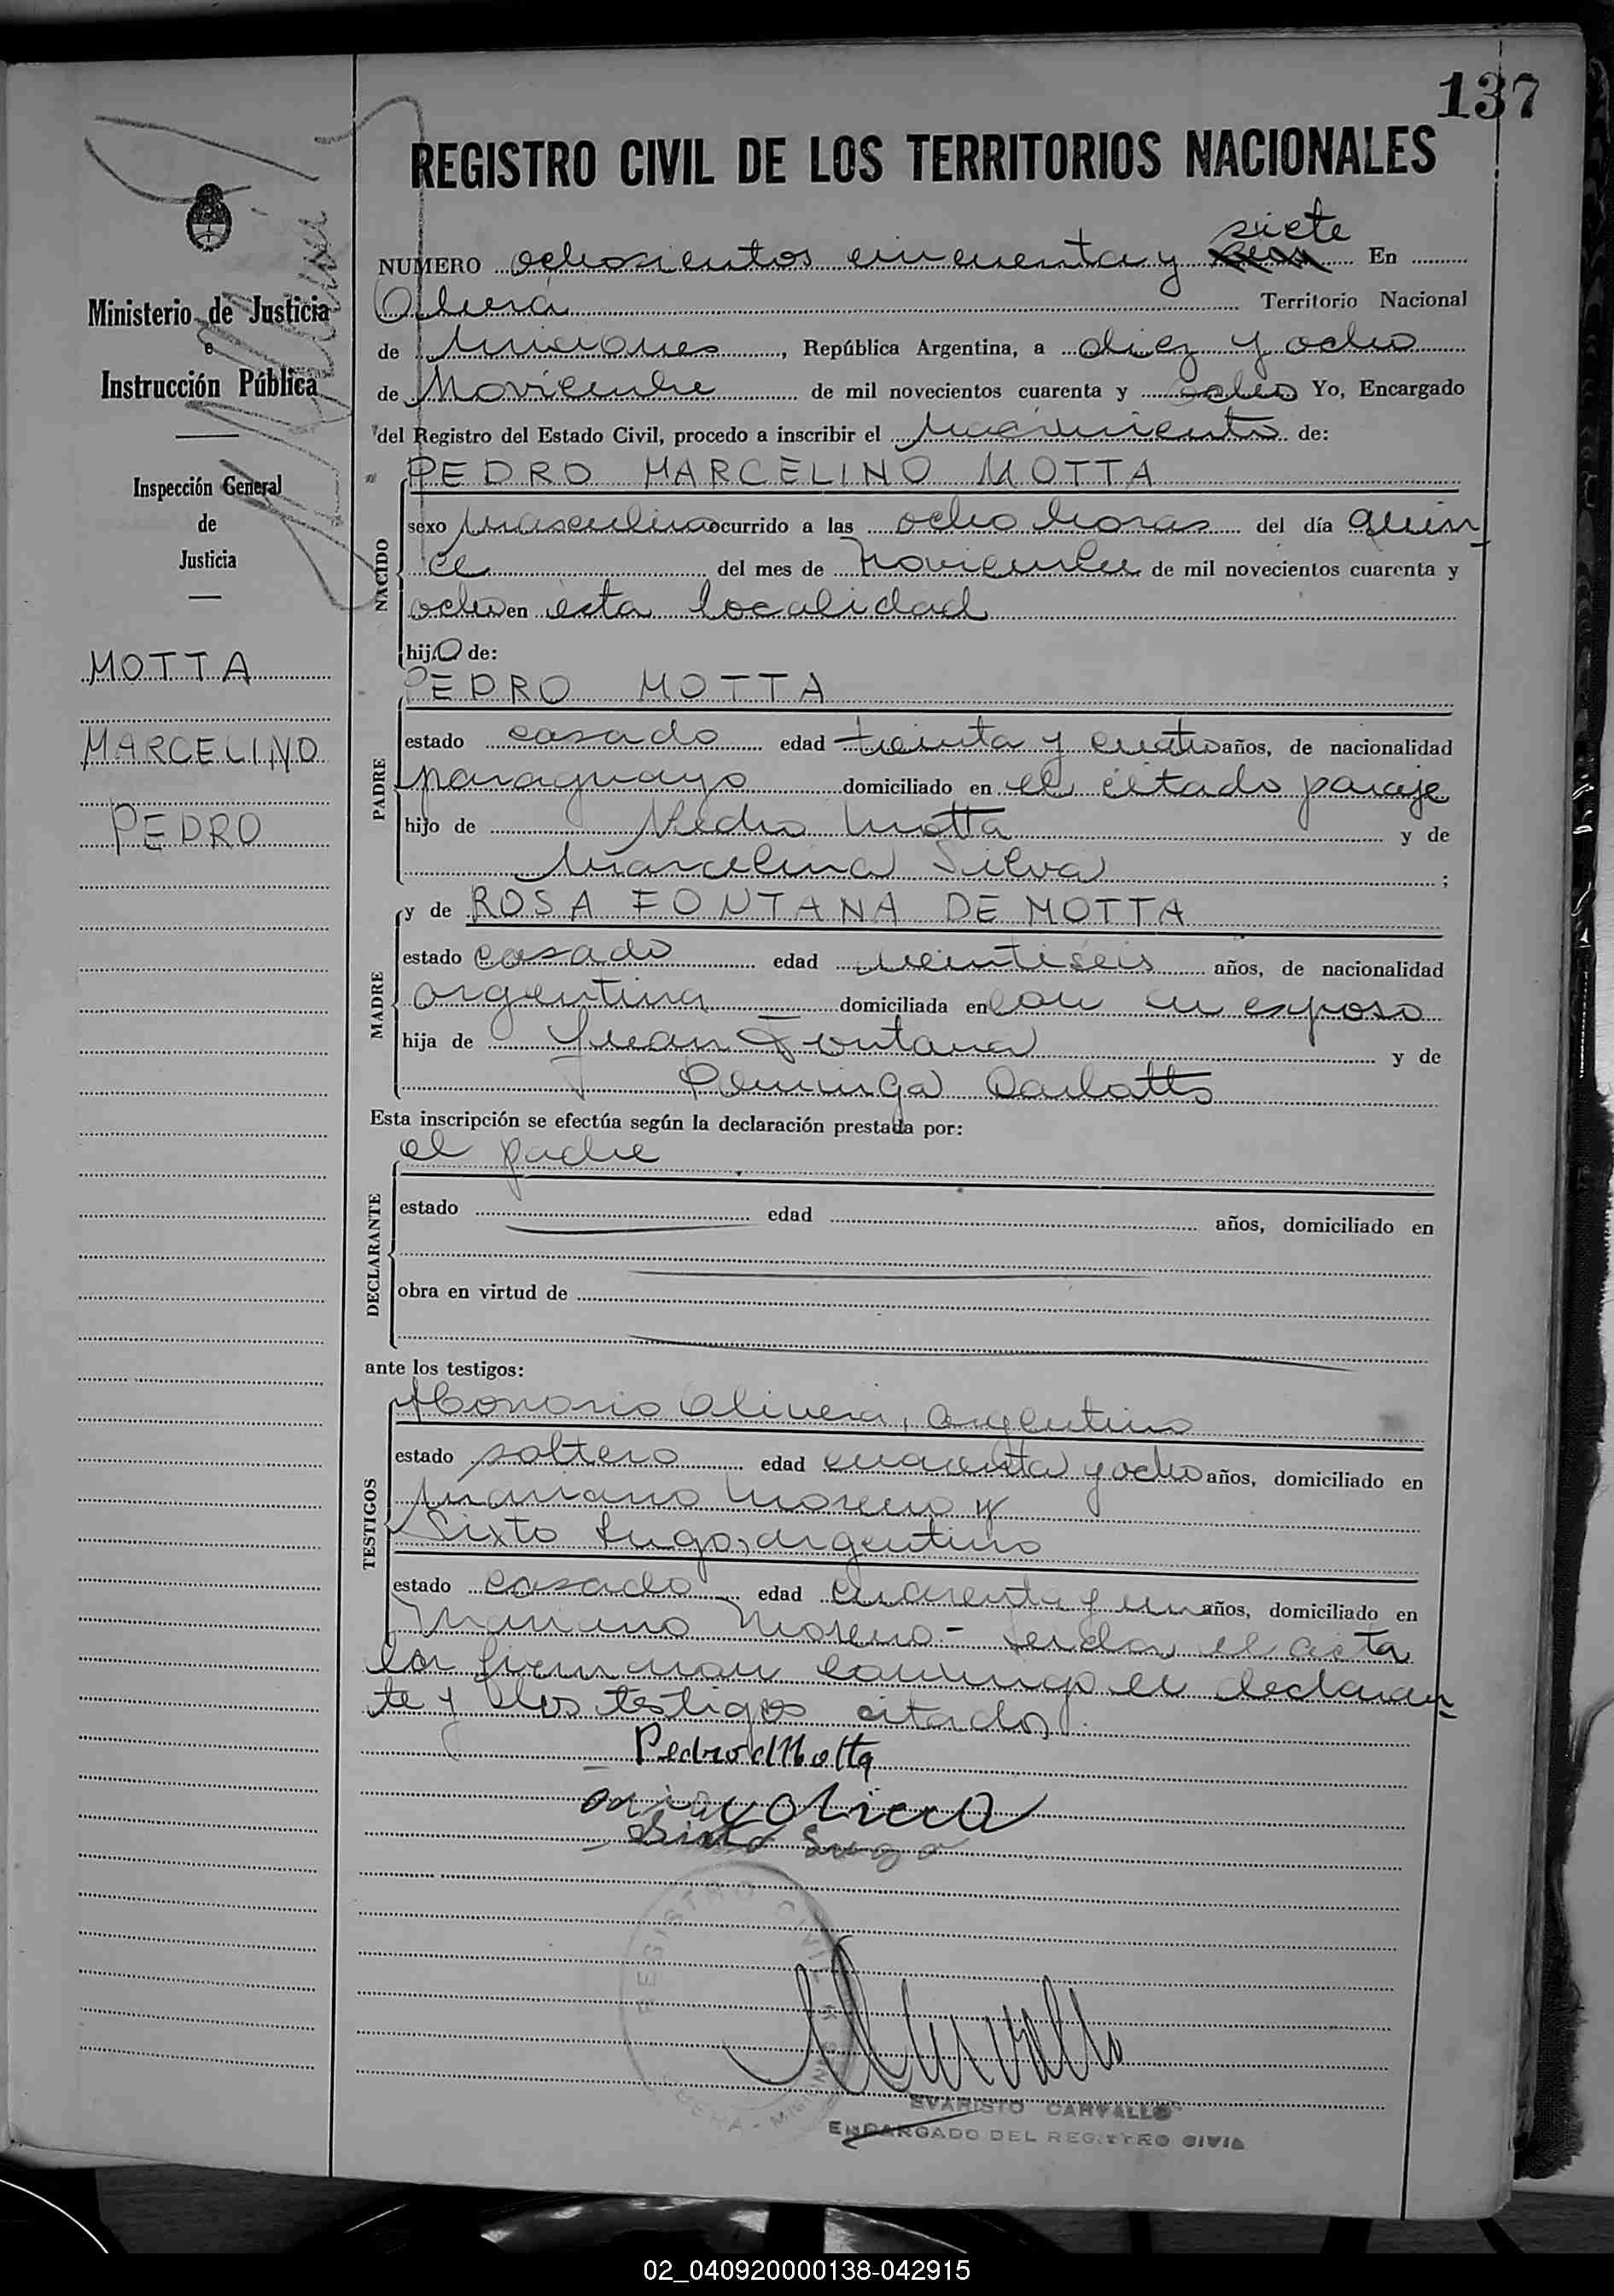 137
REGISTRO CIVIL DE LOS TERRITORIOS NACIONALES
siete
NUMERO ochosientos cincuenta y seis En
Oberá Territorio Nacional
de Misiones, República Argentina, a diez y ocho
de Noviembre de mil novecientos cuarenta y ocho Yo, Encargado
del Registro del Estado Civil, procedo a inscribir el Nacimiento de:
PEDRO MARCELINO MOTTA
sexo masculino ocurrido a las ocho horas del día quin-
ce del mes de Noviembre de mil novecientos cuarenta y
ocho en esta localidad
hijo de:
NACIDO
PEDRO MOTTA
estado casado edad treinta y cuatro años, de nacionalidad
paraguayo domiciliado en el citado paraje
hijo de Pedro Motta y de
Marcelina Silva ;
PADRE
y de ROSA FONTANA DE MOTTA
estado casado edad veintiseis años, de nacionalidad
argentina domiciliada en con su esposo
hija de Juan Fontana y de
Dominga Carlotto
MADRE
Esta inscripción se efectúa según la declaración prestada por:
el padre
estado edad años, domiciliado en
obra en virtud de
DECLARANTE
ante los testigos:
Honorio Olivera, argentino
estado soltero edad cuarenta y ocho años, domiciliado en
Mariano Moreno y
Sixto Lugo, argentino
estado casado edad cuarenta y un años, domiciliado en
Mariano Moreno.- Leida el acta
la firman conmigo el declaran-
te y los testigos citados.
TESTIGOS
Pedro Motta
Olivera
Sixto Lugo
REGISTRO CIVIL
OBERA - MISIONES
EVARISTO CARVALLO
ENCARGADO DEL REGISTRO CIVIL
Ministerio de Justicia
e
Instrucción Pública
Inspección General
de
Justicia
MOTTA
MARCELINO
PEDRO
02_040920000138-042915